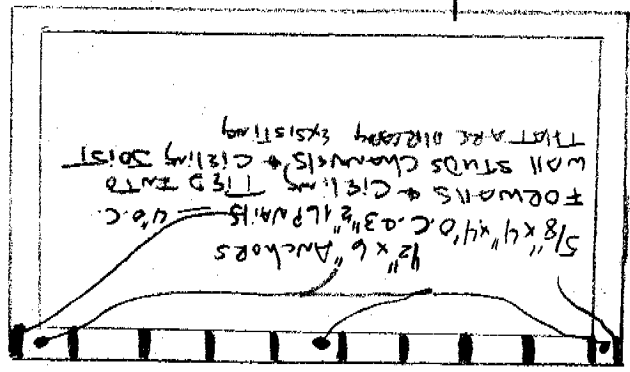 1/2" x 6" ANCHORS
5/8" x 4" x 4' O.C. 3" NAILS 4' O.C.
FORWALLS & CIELING TIED INTO
WALL STUDS CHANNELS & CIELING JOIST
THAT ARE ALREADY EXSISTING